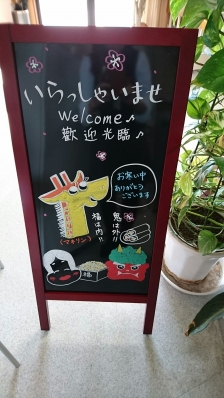 いらっしゃいませ
Welcome♪
歡迎光臨♪
お寒い中
ありがとう
ございます
(マキリン)
鬼は外!!
福は内!!
福